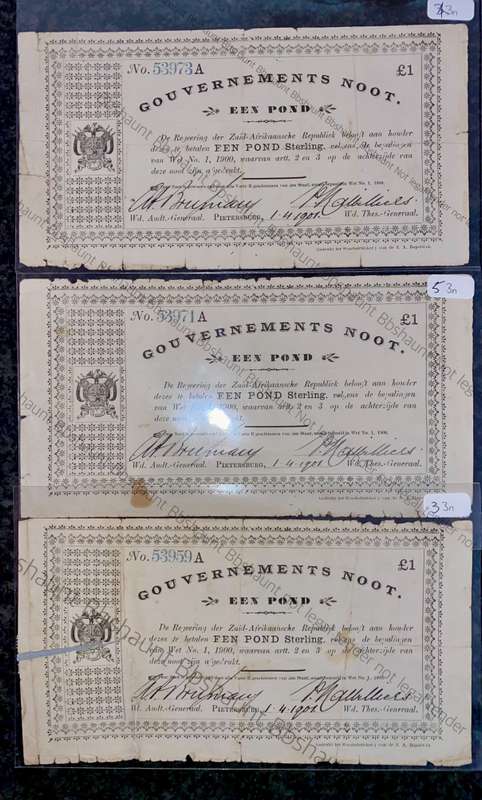 3n
No. 53973 A
£1
GOUVERNEMENTS NOOT.
EEN POND
De Regeering der Zuid-Afrikaansche Republiek belooft aan houder
dezes te betalen EEN POND Sterling, volgens de bepalingen
van Wet No. 1, 1900, waarvan artt. 2 en 3 op de achterzijde van
deze noot zijn afgedrukt.
Wd. Audt.-Generaal. PIETERSBURG, 1.4.1901. Wd. Thes.-Generaal.
53n
No. 53971 A
£1
GOUVERNEMENTS NOOT.
EEN POND
De Regeering der Zuid-Afrikaansche Republiek belooft aan houder
dezes te betalen EEN POND Sterling, volgens de bepalingen
van Wet No. 1, 1900, waarvan artt. 2 en 3 op de achterzijde van
deze
Wd. Audt.-Generaal. PIETERSBURG, 1.4.1901. Wd. Thes.-Generaal.
33n
No. 53959 A
£1
GOUVERNEMENTS NOOT.
EEN POND
De Regeering der Zuid-Afrikaansche Republiek belooft aan houder
dezes te betalen EEN POND Sterling, volgens de bepalingen
van Wet No. 1, 1900, waarvan artt. 2 en 3 op de achterzijde van
deze noot zijn afgedrukt.
Wd. Audt.-Generaal. PIETERSBURG, 1.4.1901. Wd. Thes.-Generaal.
Bbshaunt Not legal tender